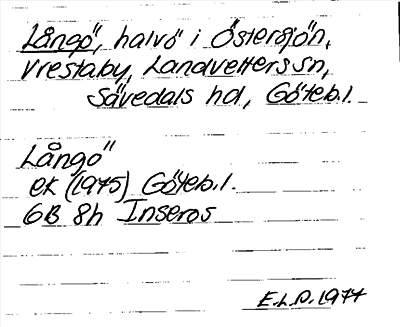 Långö, halvö i Östersjön,
Vrestaby, Landvetters sn,
Sävedals hd, Göteb.l.
Långö
ek (1975) Göteb.l.
6B 8h Inseros
E.L.D. 1977